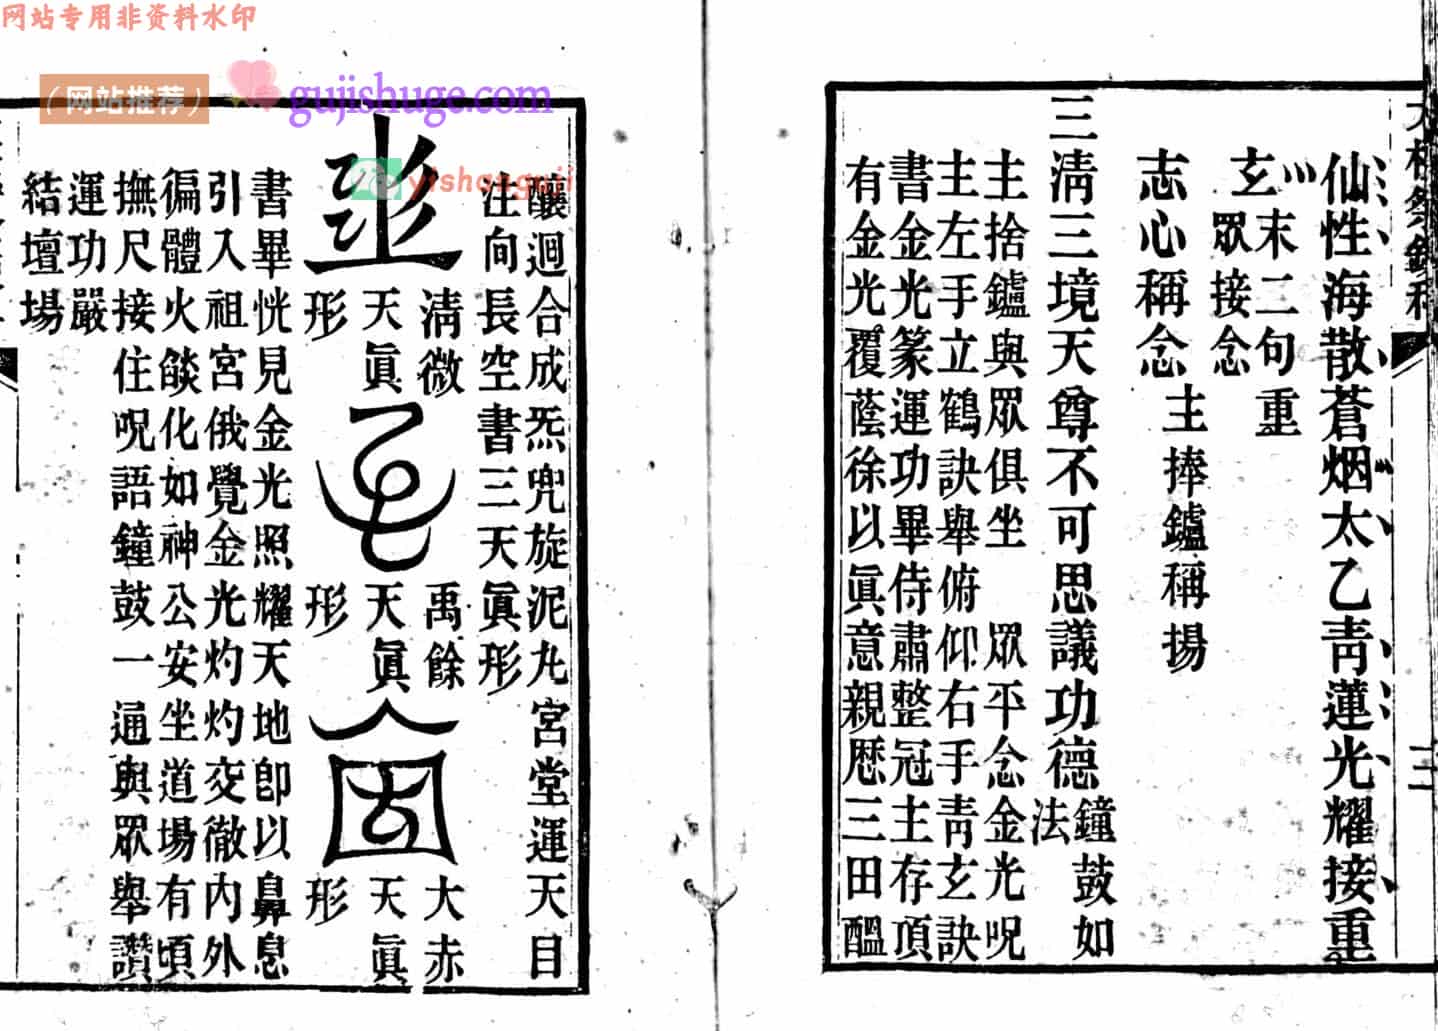 网站专用非资料水印
(网站推荐)
gujishuge.com
ytshanguji
仙性海散蒼烟太乙青蓮光耀接重
玄末二句重
眾接念
志心稱念
主捧鑪稱揚
三清三境天尊不可思議功德
鐘鼓如
法
主捨鑪與眾俱坐 眾平念金光呪
主左手立鶴訣舉俯仰右手青玄訣
書金光篆運功畢侍肅整冠主存頂
有金光覆蔭徐以眞意親歷三田醞
釀迴合成炁兜旋泥丸宮堂運天目
注向長空書三天眞形
清微
天眞
形
禹餘
天眞
形
大赤
天眞
形
書畢恍見金光照耀天地卽以鼻息
引入祖宮俄覺金光灼灼交徹內外
徧體火燄化如神公安坐道場有頃
撫尺接住呪語鐘鼓一通與眾舉讚
運功嚴
結壇場